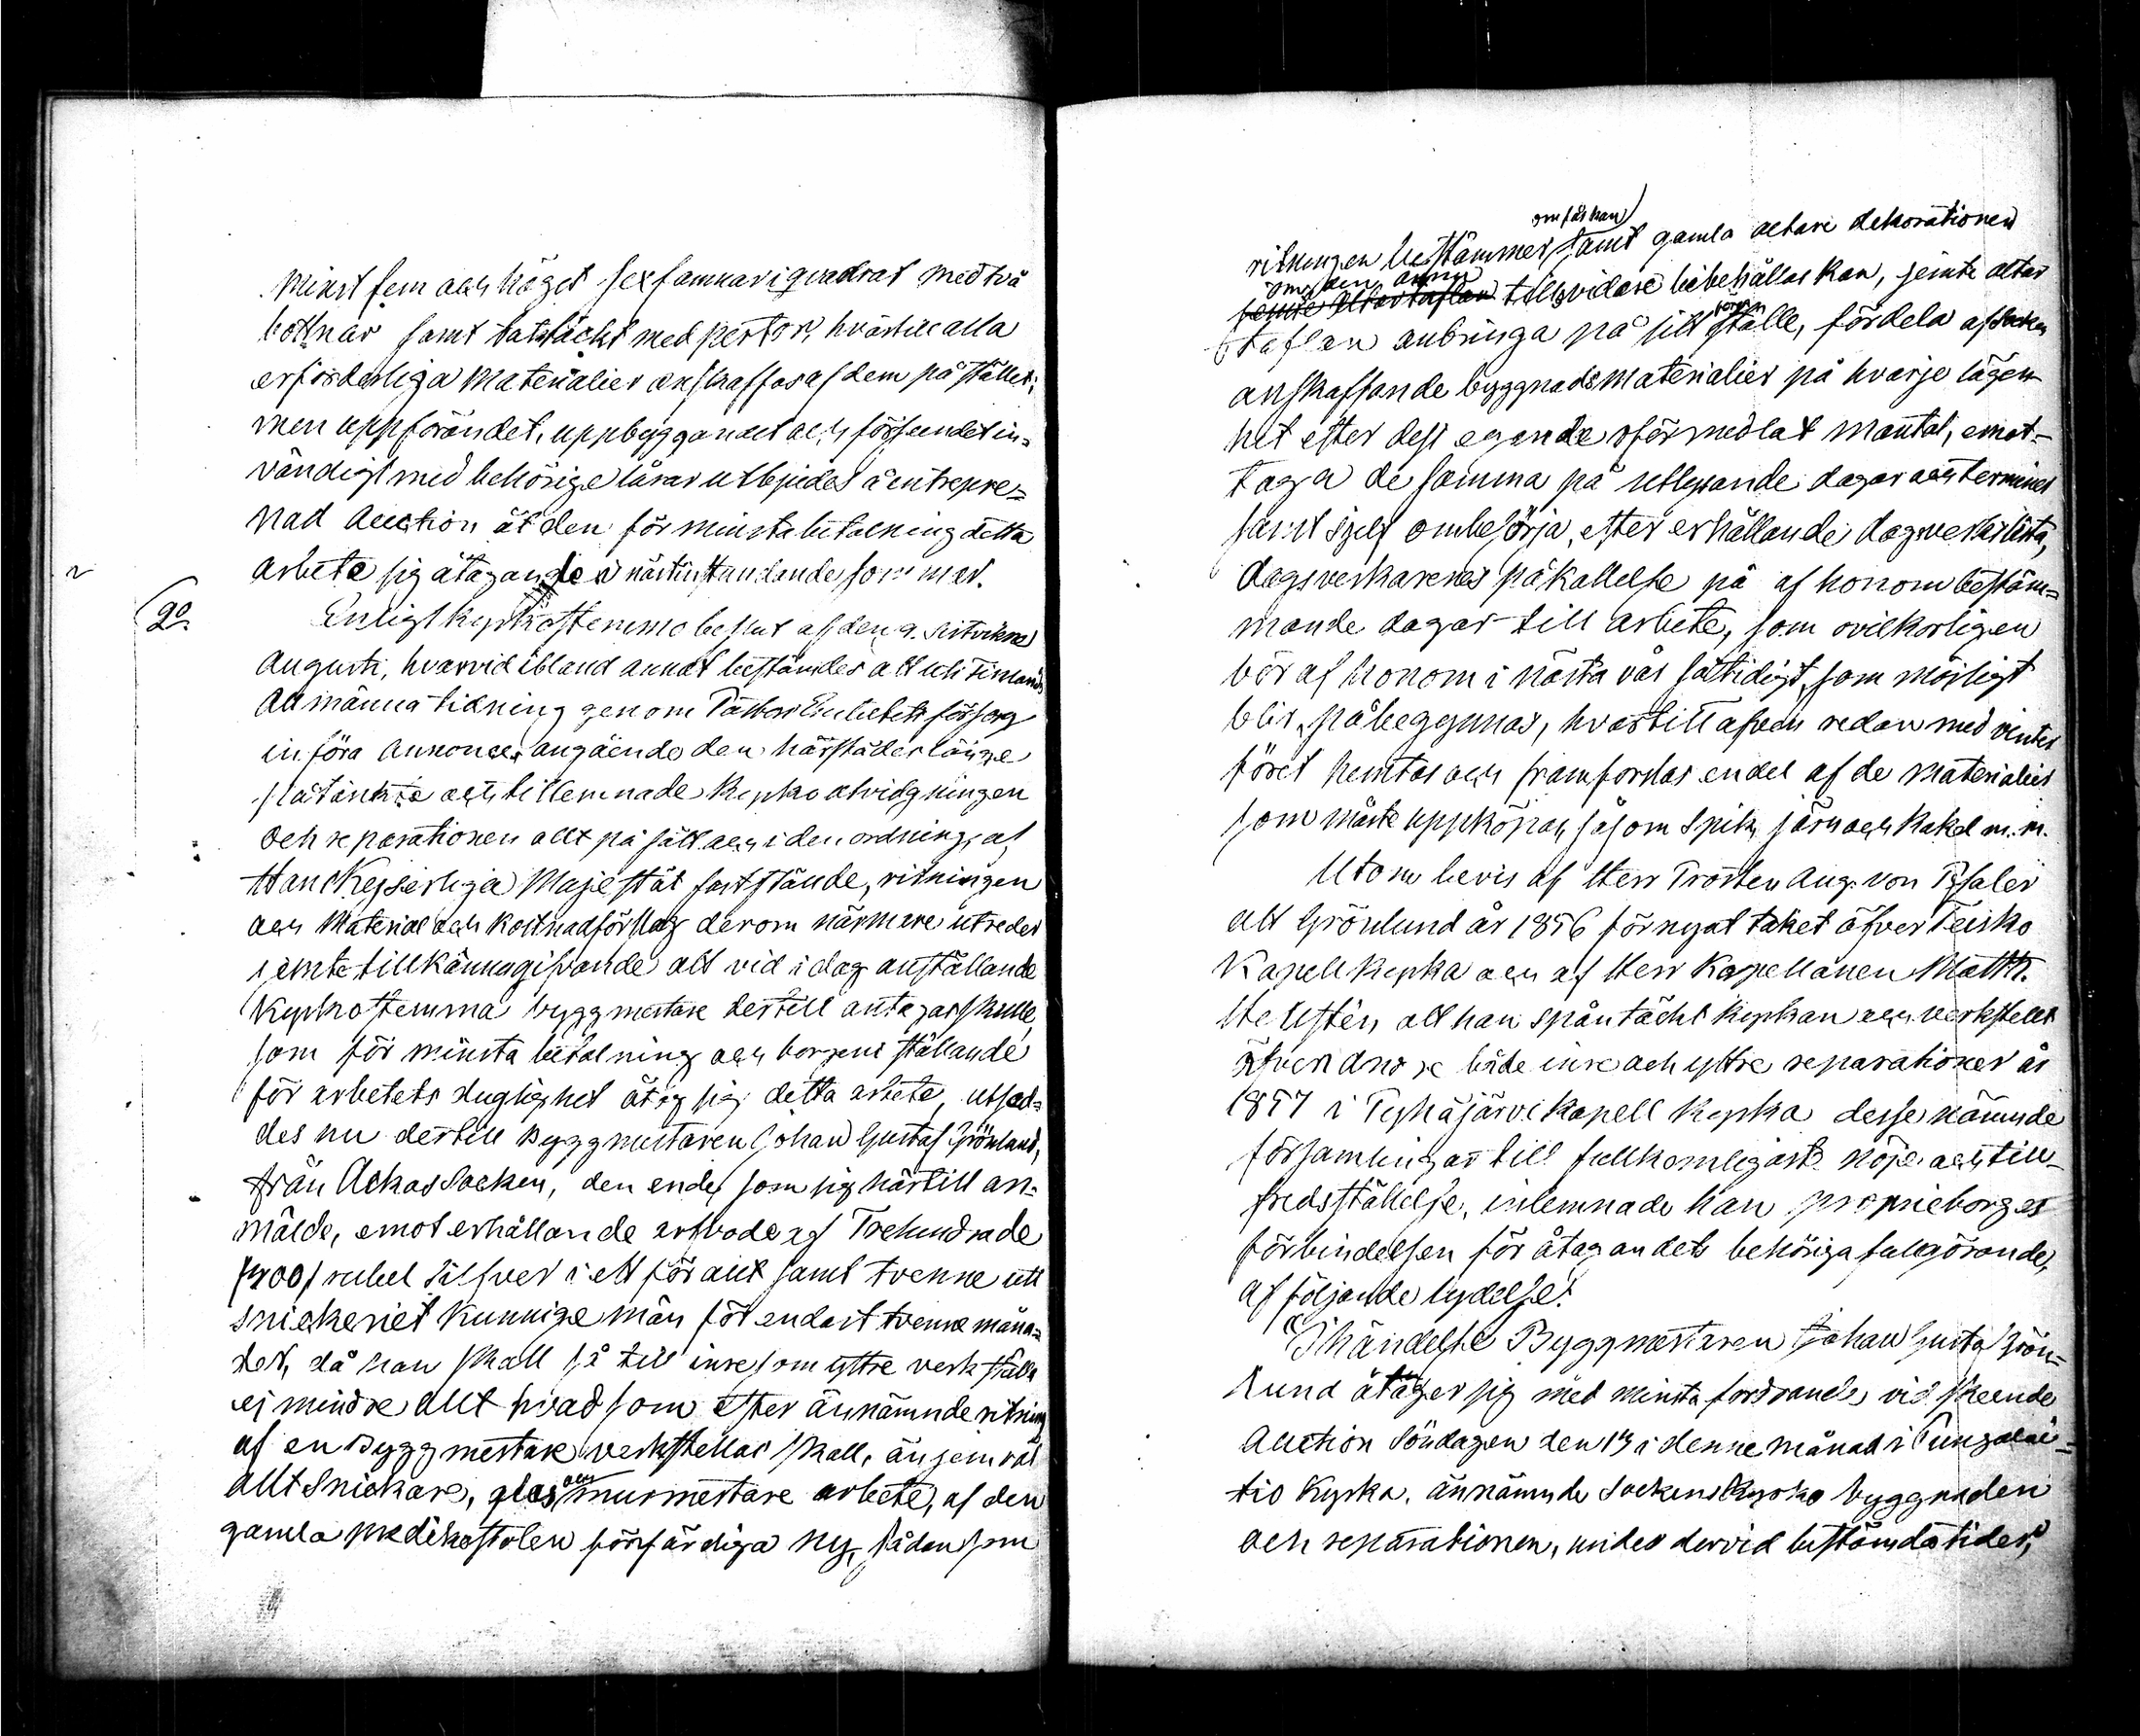 Minst fem och högst sex famnar i quadrat med två
bottnar samt taktäckt med pertor, hvartill alla
erforderliga Materialier anskaffas af dem på stället;
men uppförandet, uppbyggandet och förseendet in-
vändigt med behörige lårar utbjudes å entrepre-
nad Auction åt den för minsta betalning detta
arbete sig åtagande nästinstundande sommar.
2o. Enligt kyrkostemmo beslut af den 9. sistvikne
Augusti, hvarvid ibland annat bestämdes att uti Finlands
Allmänna tidning genom Pastors Embetets försorg
införa Annoncer angående den härstädes länge
påtänkte och tillernade kyrko utvidgningen
och reparationen allt på sätt och i den ordning, af
Hans Kejserliga Majestät fastställde, ritningen
och Material och kostnadsförslag derom närmare utreder
jemte tillkännagifvande att vid i dag anställande
Kyrkostemma byggmestare dertill antagas skulle,
som för minsta betalning och borgens ställande
för arbetets duglighet åtog sig detta arbete, utsed-
des nu dertill Byggmestaren Johan Gustaf Grönlund,
från Ackas Socken, den ende, som sig härtill an-
mälde, emot erhållande arfvode af Trehundrade
/300/ rubel Silfver i ett för allt samt tvenne uti
snickeriet kunnige män för endast tvenne måna-
der, då han skall så till inre som yttre verkställa
ej mindre allt hvad som efter ännämnde ritning
af en Byggmestare verkställas skall, än jemväl
allt Snickare, glas och murmestare arbete, af den
gamla Predikostolen förfärdiga ny, sådan som
om så kan
ritningen bestämmer, samt gamla altare dekorationen
om den ännu
jemte Altartaflan tillsvidare bibehållas kan, jemte altar
taflan anbringa på sitt förra ställe, fördela af Socken
anskaffande byggnads Materialier på hvarje lägen-
het efter dess egande oförmedlat mantal, emot-
taga de samma på utlysande dagar och terminer
samt sjelf ombesörja, efter erhållande dagsverkslista,
dagsverkarenes påkallelse på af honom bestäm-
mande dagar till arbete, som ovilkorligen
bör af honom i nästa vår så tidigt, som möjligt
blir, påbegynnas, hvartill äfven redan med vinter
föret hemtas och framforslas en del af de materialier
som måste uppköpas, såsom Spik, järn och kakel m. m.
Utom bevis af Herr Prosten Aug. von Pfaler
att Grönlund år 1856 förnyat taket öfver Teisko
Kapell kyrka och af Herr Kapellanen Matth.
Hellstén, att han spåntäckt kyrkan och verkstellt
äfven andre både inre och yttre reparationer år
1857 i Pyhäjärvi kapell kyrka desse nämnde
församlingar till fullkomligaste nöje och till-
fredsställelse, inlemnade han proprieborges
förbindelsen för åtagandets behöriga fullgörande,
af följande lydelse:
"I händelse Byggmestaren Johan Gustaf Grön-
lund åtager sig med minsta fordrande vid skeende
Auction Söndagen den 13 i denne månad i Tungalai-
tio Kyrka, ännämnde Sockens Kyrko byggnaden
och reparationen, under dervid bestämda tider,